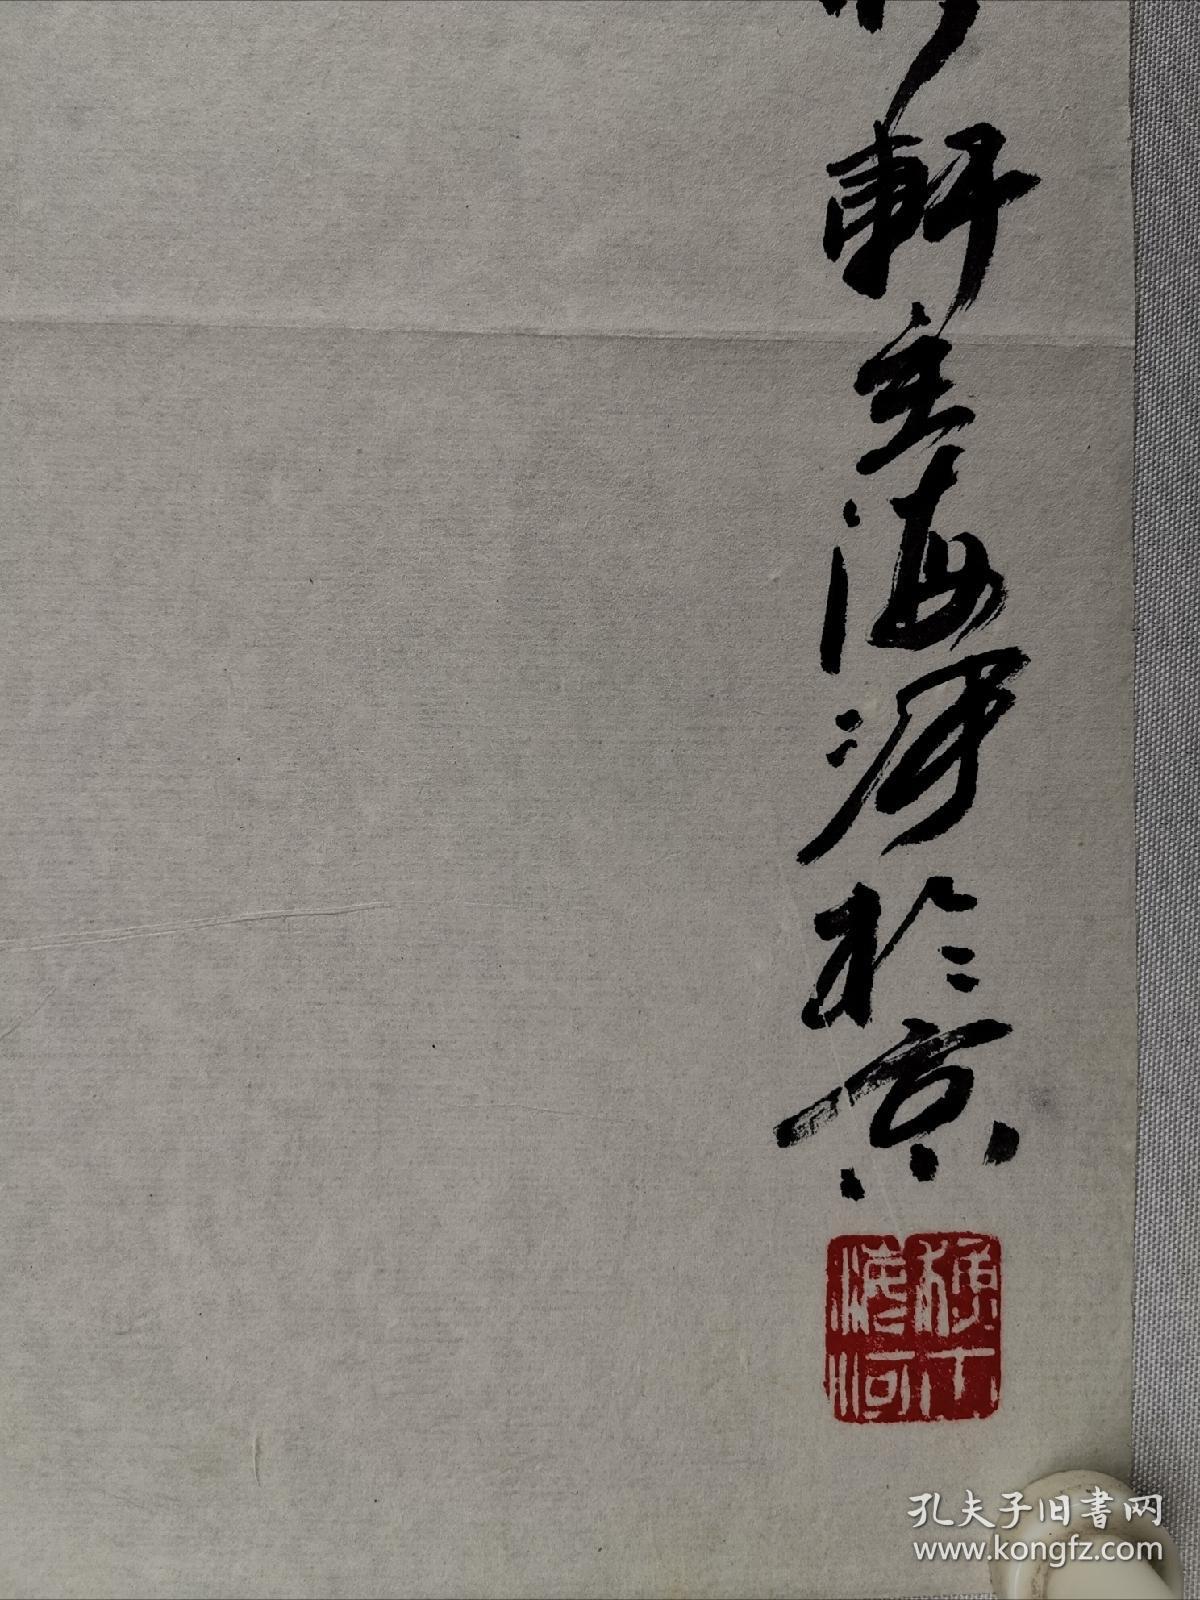 軒主海河於京
海河
孔夫子旧書网
www.kongfz.com